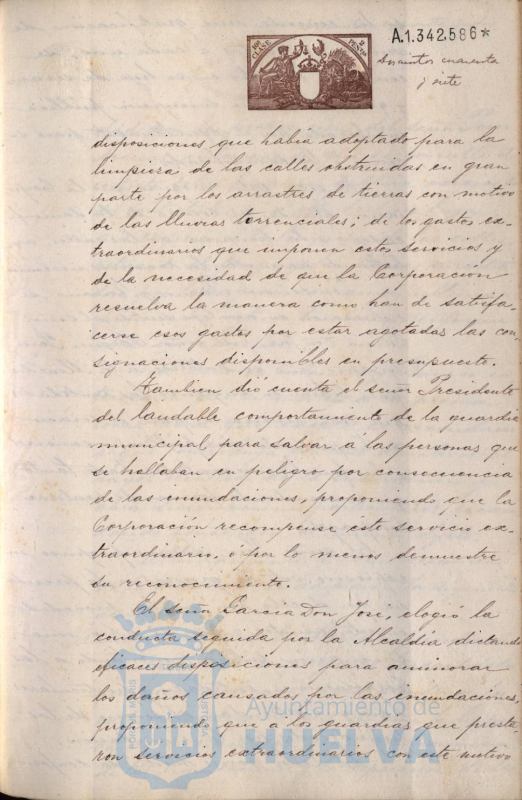 10ª CLASE
2 PESETAS
A.1.342.586*
Doscientos cuarenta
y siete
disposiciones que habia adoptado para la
limpieza de las calles obstruidas en gran
parte por los arrastres de tierras con motivo
de las lluvias torrenciales; de los gastos ex-
traordinarios que imponen estos servicios y
de la necesidad de que la Corporacion
resuelva la manera como han de satisfa-
cerse esos gastos por estar agotadas las con-
signaciones disponibles en presupuesto.
Tambien dió cuenta el señor Presidente
del laudable comportamiento de la guardia
municipal para salvar á las personas que
se hallaban en peligro por consecuencia
de las inundaciones, proponiendo que la
Corporación recompense este servicio ex-
traordinario, ó por lo menos demuestre
su reconocimiento.
El señor Garcia Don José, elogió la
conducta seguida por la Alcaldia dictando
eficaces disposiciones para aminorar
los daños causados por las inundaciones,
proponiendo que a los guardias que presta-
ron servicios extraordinarios con este motivo
Ayuntamiento de
HUELVA